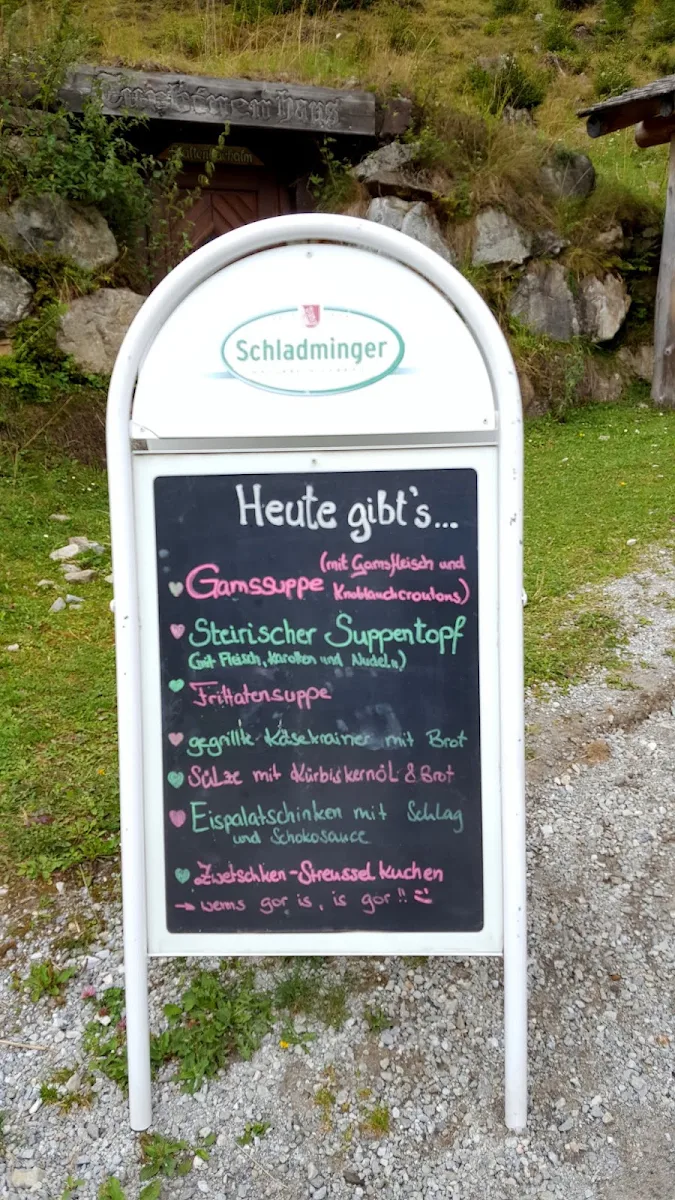 Schladminger
Heute gibt's...
(mit Gamsfleisch und
Gamssuppe Knoblauchcroutons)
Steirischer Suppentopf
(mit Fleisch, Karotten und Nudeln)
Frittatensuppe
gegrillte Käsekrainer mit Brot
Sülze mit Kürbiskernöl & Brot
Eispalatschinken mit Schlag
und Schokosauce
Zwetschken-Streusselkuchen
→ wenns gor is, is gor!!